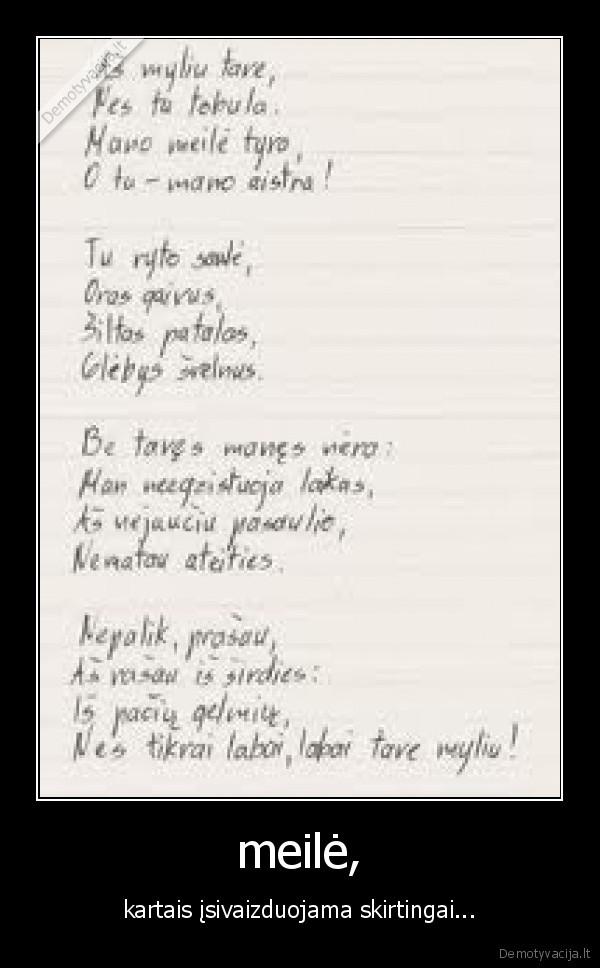 Demotyvacija.lt
Aš myliu tave,
Nes tu tobula.
Mano meilė tyra,
O tu - mano aistra!
Tu ryto saulė,
Oras gaivus,
Šiltas patalas,
Glėbys švelnus.
Be tavęs manęs nėra:
Man neegzistuoja laikas,
Aš nejaučiu pasaulio,
Nematau ateities.
Nepalik, prašau,
Aš rašau iš širdies:
Iš pačių gelmių,
Nes tikrai labai, labai tave myliu!
meilė,
kartais įsivaizduojama skirtingai...
Demotyvacija.lt